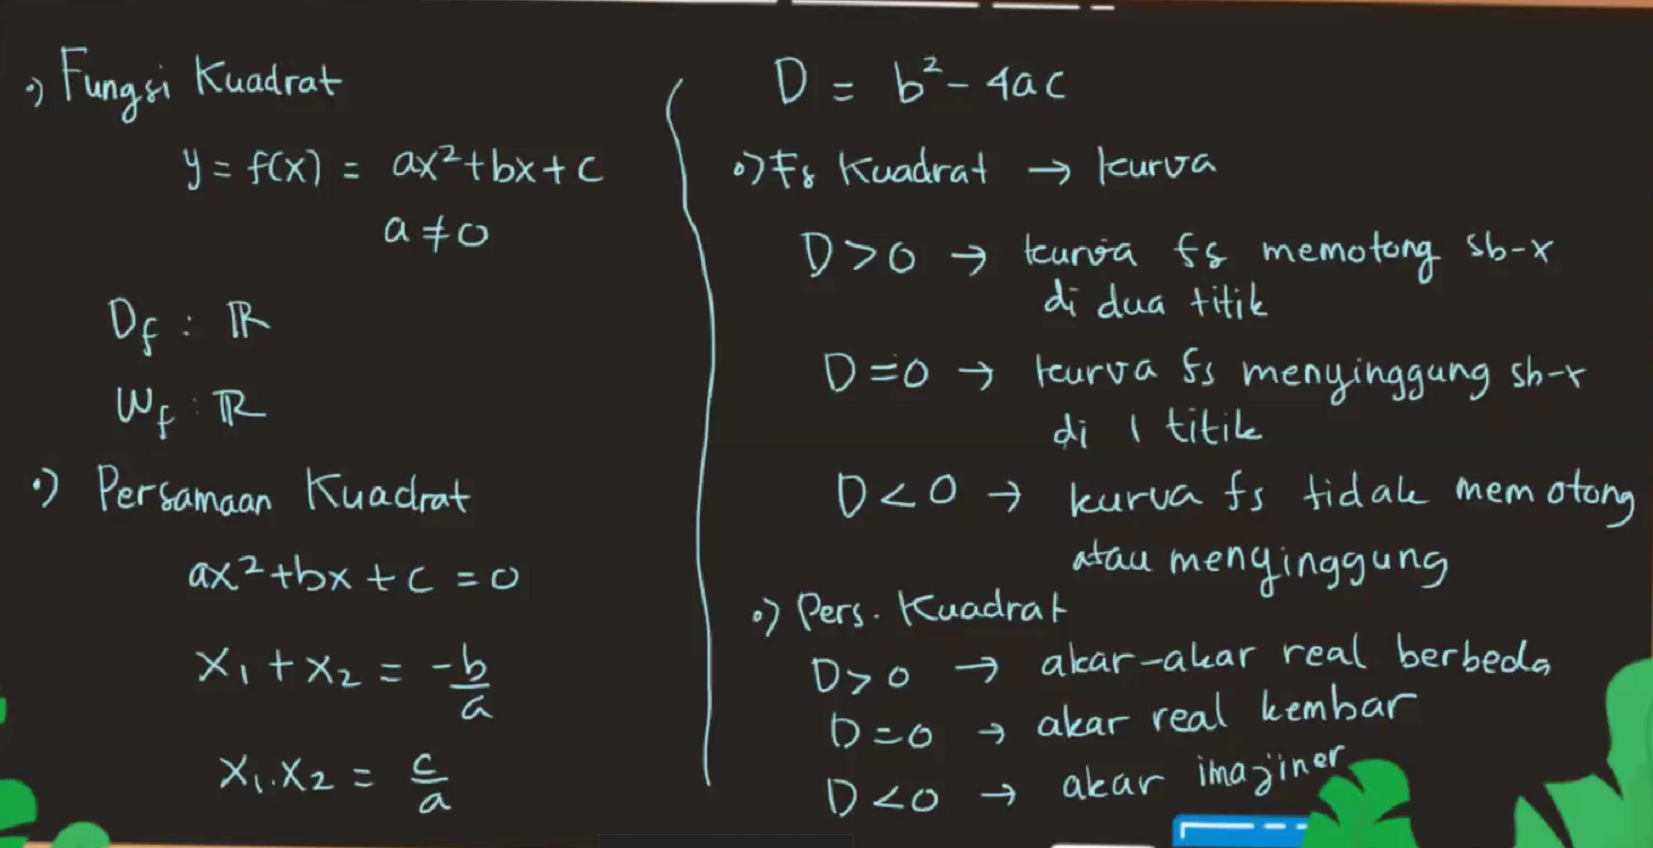 •) Fungsi Kuadrat
y = f(x) = ax²+bx+c
a ≠ 0
D_f : ℝ
W_f : ℝ
•) Persamaan Kuadrat
ax²+bx+c = 0
x₁ + x₂ = -b/a
x₁.x₂ = c/a
D = b² - 4ac
•) Fs Kuadrat → kurva
D > 0 → kurva fs memotong sb-x
di dua titik
D = 0 → kurva fs menyinggung sb-x
di 1 titik
D < 0 → kurva fs tidak memotong
atau menyinggung
•) Pers. Kuadrat
D > 0 → akar-akar real berbeda
D = 0 → akar real kembar
D < 0 → akar imajiner